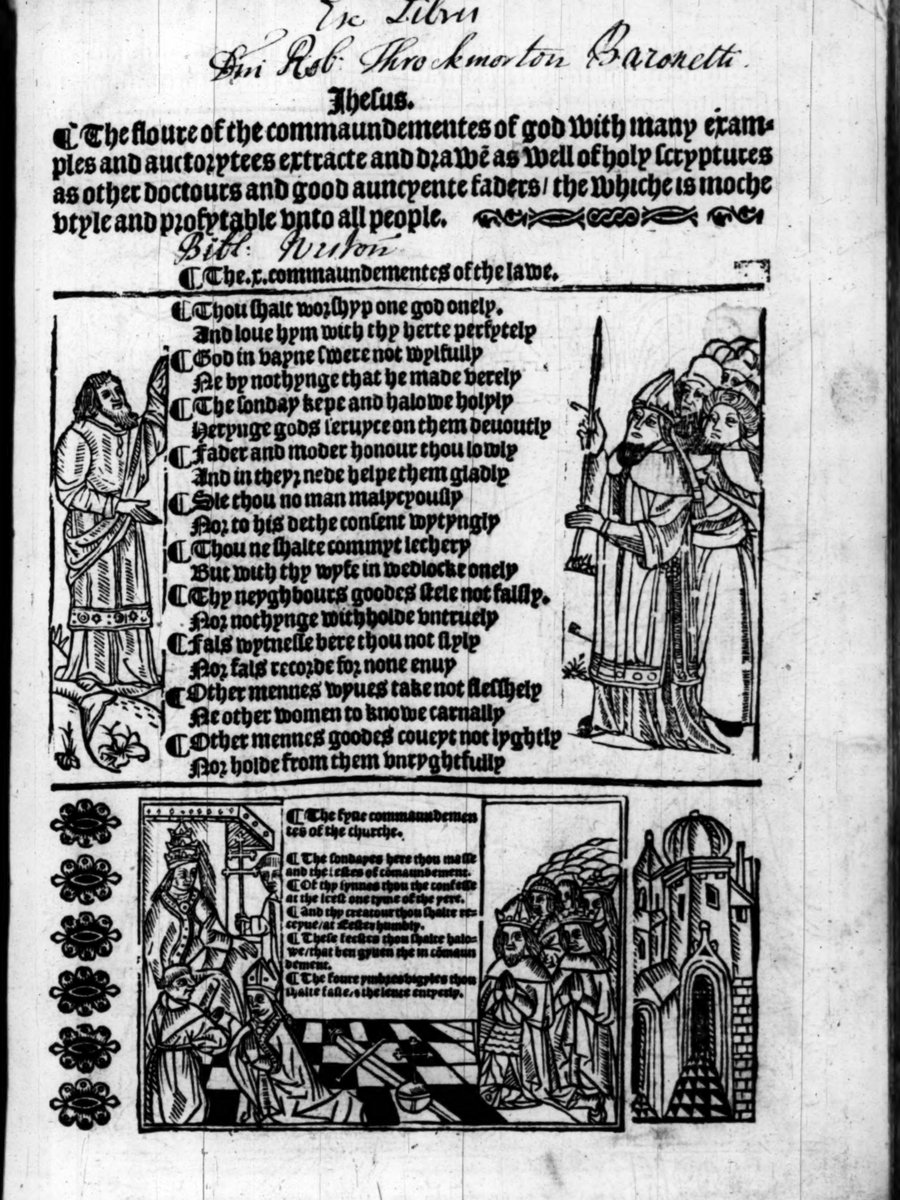 Ex Libris
Dni Rob: Throckmorton Baronetti.
Jhesus.
¶ The floure of the commaundementes of god with many exam-
ples and auctorytees extracte and drawē as well of holy scryptures
as other doctours and good auncyente faders/ the whiche is moche
vtyle and profytable vnto all people.
Bibl:
¶ The .x. commaundementes of the lawe.
¶ Thou shalt worshyp one god onely.
And loue hym with thy herte perfytely
¶ God in vayne swere not wylfully
Ne by nothynge that he made verely
¶ The sonday kepe and halowe holyly
Herynge gods seruyce on them deuoutly
¶ Fader and moder honour thou lowly
And in theyr nede helpe them gladly
¶ Sle thou no man malycyously
Nor to his dethe consent wytyngly
¶ Thou ne shalte commyt lechery
But with thy wyfe in wedlocke onely
¶ Thy neyghbours goodes stele not falsly.
Nor nothynge withholde vntruely
¶ Fals wytnesse bere thou not slyly
Nor fals recorde for none enuy
¶ Other mennes wyues take not flesshely
Ne other women to knowe carnally
¶ Other mennes goodes coueyt not lyghtly
Nor holde from them vnryghtfully
¶ The fyue commaundemen
tes of the churche.
¶ The sondayes here thou masse
and the festes of cōmaundement.
¶ Of thy synnes thou the confesse
at the leest one tyme of the yere.
¶ And thy creatour thou shalte re-
ceyue/at Eester humbly.
¶ These feestes thou shalte halo-
we/that ben gyuen the in cōmaun
dement.
¶ The foure ymbres vigyles thou
shalte faste, & the lente entyerly.